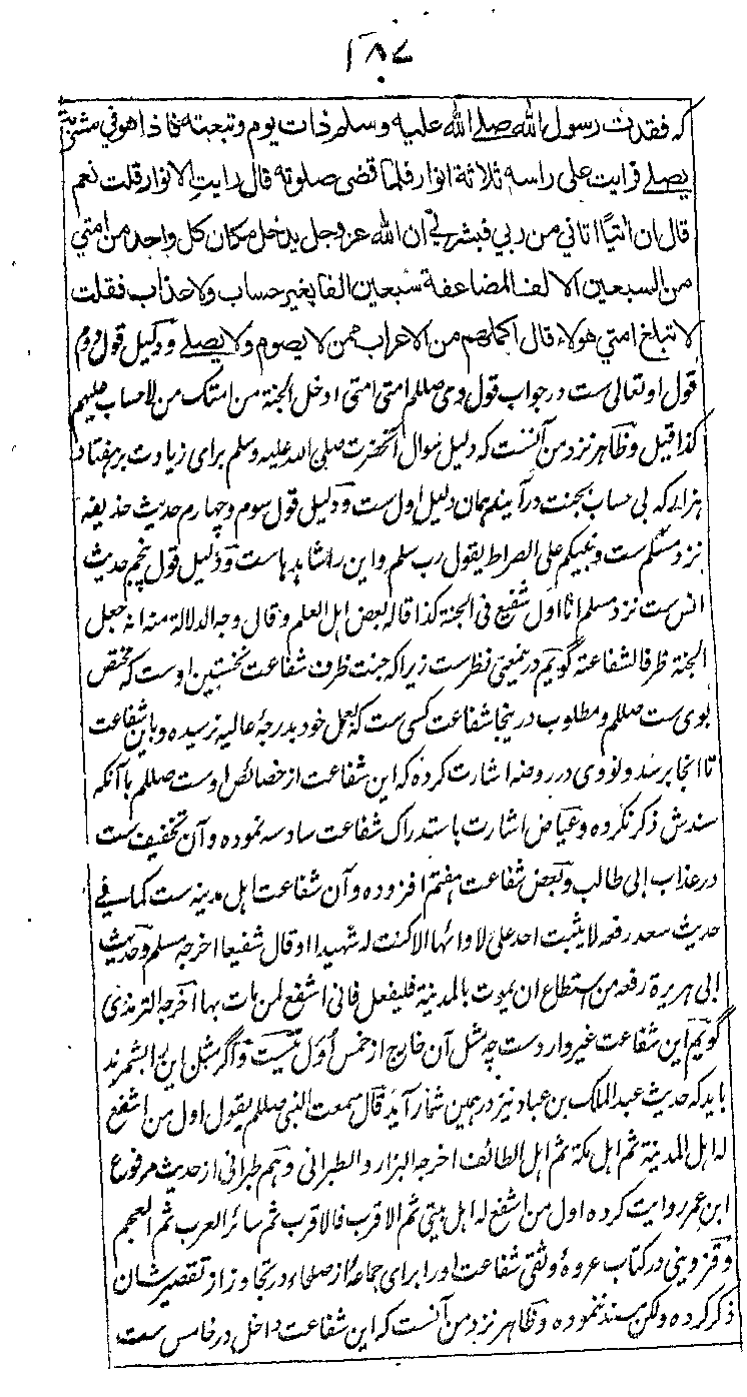 ۱۸۷
که فقدت رسول الله صلے الله علیه وسلم ذات یوم وتبعته فاذا هو فی مشربة
یصلے فرایت علی راسه ثلاثة انوار فلما قضی صلوته قال رایت الانوار قلت نعم
قال ان اتیا اتانی من ربی فبشرنی ان الله عز وجل یدخل مکان کل واحد من امتی
من السبعین الالف المضاعفة سبعین الفا بغیر حساب ولا عذاب فقلت
لا تبلغ امتی هولاء قال اکملهم من الاعراب ممن لا یصوم ولا یصلے ودلیل قول دوم
قول او تعالی ست در جواب قول وی صللم امتی امتی ادخل الجنة من امتک من لا حساب علیهم
کذا قیل وظاهر نزد من آنست که دلیل سوال آنحضرت صلی الله علیه وسلم برای زیادت بر هفتاد
هزار که بی حساب بجنت در آیند همان دلیل اول ست ودلیل قول سوم وچهارم حدیث حذیفه
نزد مسلم ست ونبیکم علی الصراط یقول رب سلم واین را شاهدهاست ودلیل قول پنجم حدیث
انس ست نزد مسلم انا اول شفیع فی الجنة کذا قاله بعض اهل العلم وقال وجه الدلالة منه انه جعل
الجنة ظرفا لشفاعته گویم درینمعنی نظرست زیراکه جنت ظرف شفاعت نخستین اوست که مختص
بوی ست صللم ومطلوب درینجا شفاعت کسی ست که بعمل خود بدرجهٔ عالیه نرسیده وباین شفاعت
تا آنجا برسد ونووی در روضه اشارت کرده که این شفاعت از خصائص اوست صللم باآنکه
سندش ذکر نکرده وعیاض اشارت باستدراک شفاعت سادسه نموده وآن تخفیف ست
در عذاب ابی طالب وبعض شفاعت هفتم افزوده وآن شفاعت اهل مدینه ست کما فی
حدیث سعد رفعه لا یثبت احد علی لاوائها الا کنت له شهیدا او قال شفیعا اخرجه مسلم وحدیث
ابی هریرة رفعه من استطاع ان یموت بالمدینة فلیفعل فانی اشفع لمن مات بها اخرجه الترمذی
گویم این شفاعت غیر واردست چه مثل آن خارج از خمس اول نیست واگر مثل این را بشمرند
باید که حدیث عبد الملک بن عباد نیز در همین شمار آید قال سمعت النبی صللم یقول اول من اشفع
له اهل المدینة ثم اهل مکة ثم اهل الطائف اخرجه البزار والطبرانی وهم طبرانی از حدیث مرفوع
ابن عمر روایت کرده اول من اشفع له اهل بیتی ثم الاقرب فالاقرب ثم سائر العرب ثم العجم
وقزوینی در کتاب عروهٔ وثقی شفاعت او را برای جماعهٔ از صلحاء در تجاوز از تقصیر شان
ذکر کرده ولکن سند ننموده وظاهر نزد من آنست که این شفاعت داخل در خامس ست